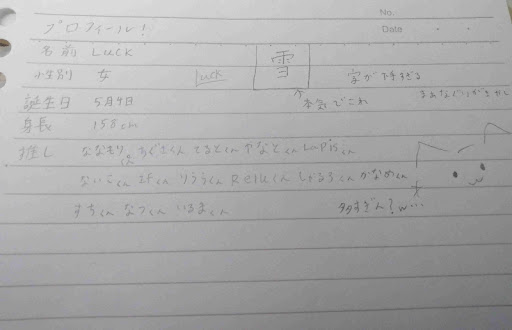 No.
プロフィール!
Date
名前 Luck
雪
性別 女
Luck
字が下手すぎる
誕生日 5月4日
本気でこれ
身長 158cm
推し ななもりくん ちぐさくん てるとくん やなとくん Lapisくん
ないこくん Ifくん りうらくん Reluくん しゃるろくん かなめくん
すちくん なつくん いるまくん 多すぎん?w…